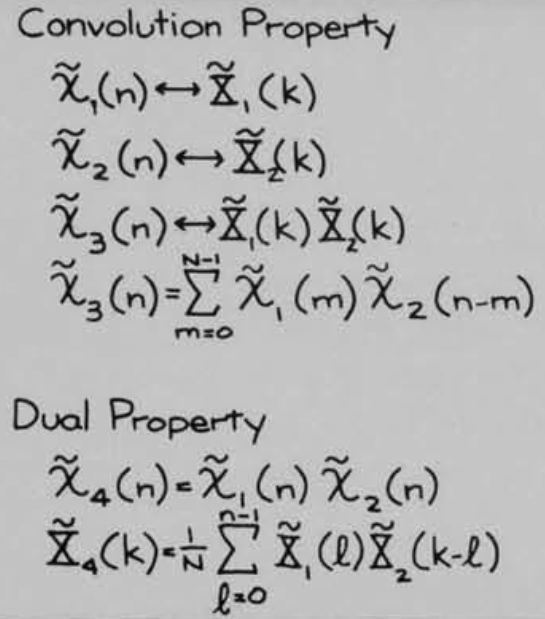 Convolution Property
x̃₁(n) ↔ X̃₁(k)
x̃₂(n) ↔ X̃₂(k)
x̃₃(n) ↔ X̃₁(k) X̃₂(k)
x̃₃(n) = ∑_{m=0}^{N-1} x̃₁(m) x̃₂(n-m)
Dual Property
x̃₄(n) = x̃₁(n) x̃₂(n)
X̃₄(k) = 1/N ∑_{ℓ=0}^{n-1} X̃₁(ℓ) X̃₂(k-ℓ)